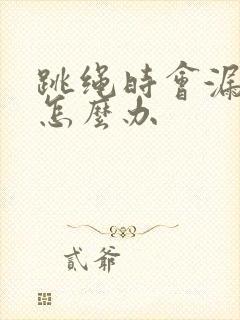 跳绳時會漏
怎麼办
貳爺